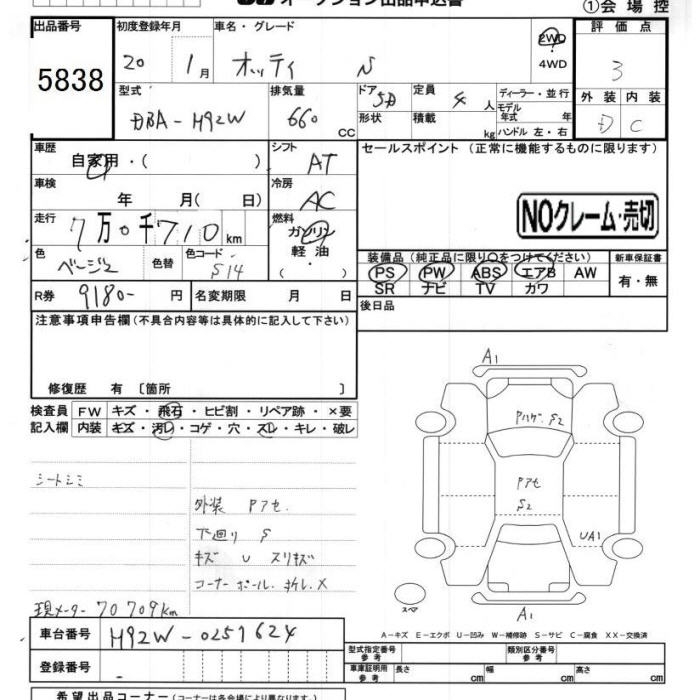 オークション出品申込書 ①会場控
出品番号 初度登録年月 車名・グレード 評価点
5838 20 1月 オッティ N 2WD 3
4WD
型式 排気量 ドア 5D 定員 4人 ディーラー・並行 外装 内装
DBA-H92W 660 CC 形状 積載 kg モデル年式 年 D C
ハンドル 左・右
車歴 シフト セールスポイント (正常に機能するものに限ります)
自家用・( ) AT
車検 冷房
年 月( 日) AC NOクレーム・売切
走行 燃料
7万0千710km ガソリン
色 色替 色コード 軽油 装備品(純正品に限り○をつけてください) 新車保証書
ベージュ S14 ・( ) PS PW ABS エアB AW 有・無
R券 9180- 円 名変期限 月 日 SR ナビ TV カワ
後日品
注意事項申告欄(不具合内容等は具体的に記入して下さい)
修復歴 有 [箇所 ]
検査員 FW キズ・飛石・ヒビ割・リペア跡・×要
記入欄 内装 キズ・汚レ・コゲ・穴・スレ・キレ・破レ
A1
Pハゲ S2
シートシミ
Pアセ
S2
外装 Pアセ
下廻り S
UA1
キズ U スリキズ
コーナーポール 折レ ×
スペア
現メーター 70709km
A1
A-キズ E-エクボ U-凹み W-補修跡 S-サビ C-腐食 XX-交換済
車台番号 H92W-0251624
型式指定番号 参考 類別区分番号 参考
登録番号 -
車庫証明用 参考 長さ cm 幅 cm 高さ cm
希望出品コーナー(コーナースは各会場により異なります)